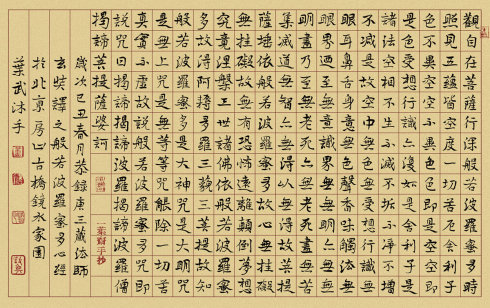 觀自在菩薩行深般若波羅蜜多時
照見五蘊皆空度一切苦厄舍利子
色不異空空不異色色即是空空即
是色受想行識亦復如是舍利子是
諸法空相不生不滅不垢不淨不增
不減是故空中無色無受想行識無
眼耳鼻舌身意無色聲香味觸法無
眼界乃至無意識界無無明亦無無
明盡乃至無老死亦無老死盡無苦
集滅道無智亦無得以無所得故菩提
薩埵依般若波羅蜜多故心無掛礙
無掛礙故無有恐怖遠離顛倒夢想
究竟涅槃三世諸佛依般若波羅蜜
多故得阿耨多羅三藐三菩提故知
般若波羅蜜多是大神咒是大明咒
是無上咒是無等等咒能除一切苦
真實不虛故說般若波羅蜜多咒即
說咒曰揭諦揭諦波羅揭諦波羅僧
揭諦菩提薩婆訶
一葉齋手抄
歲次己丑春月恭錄唐三藏法師
玄奘譯之般若波羅蜜多心經
於北京房山古橋鏡水家園
葉武沐手